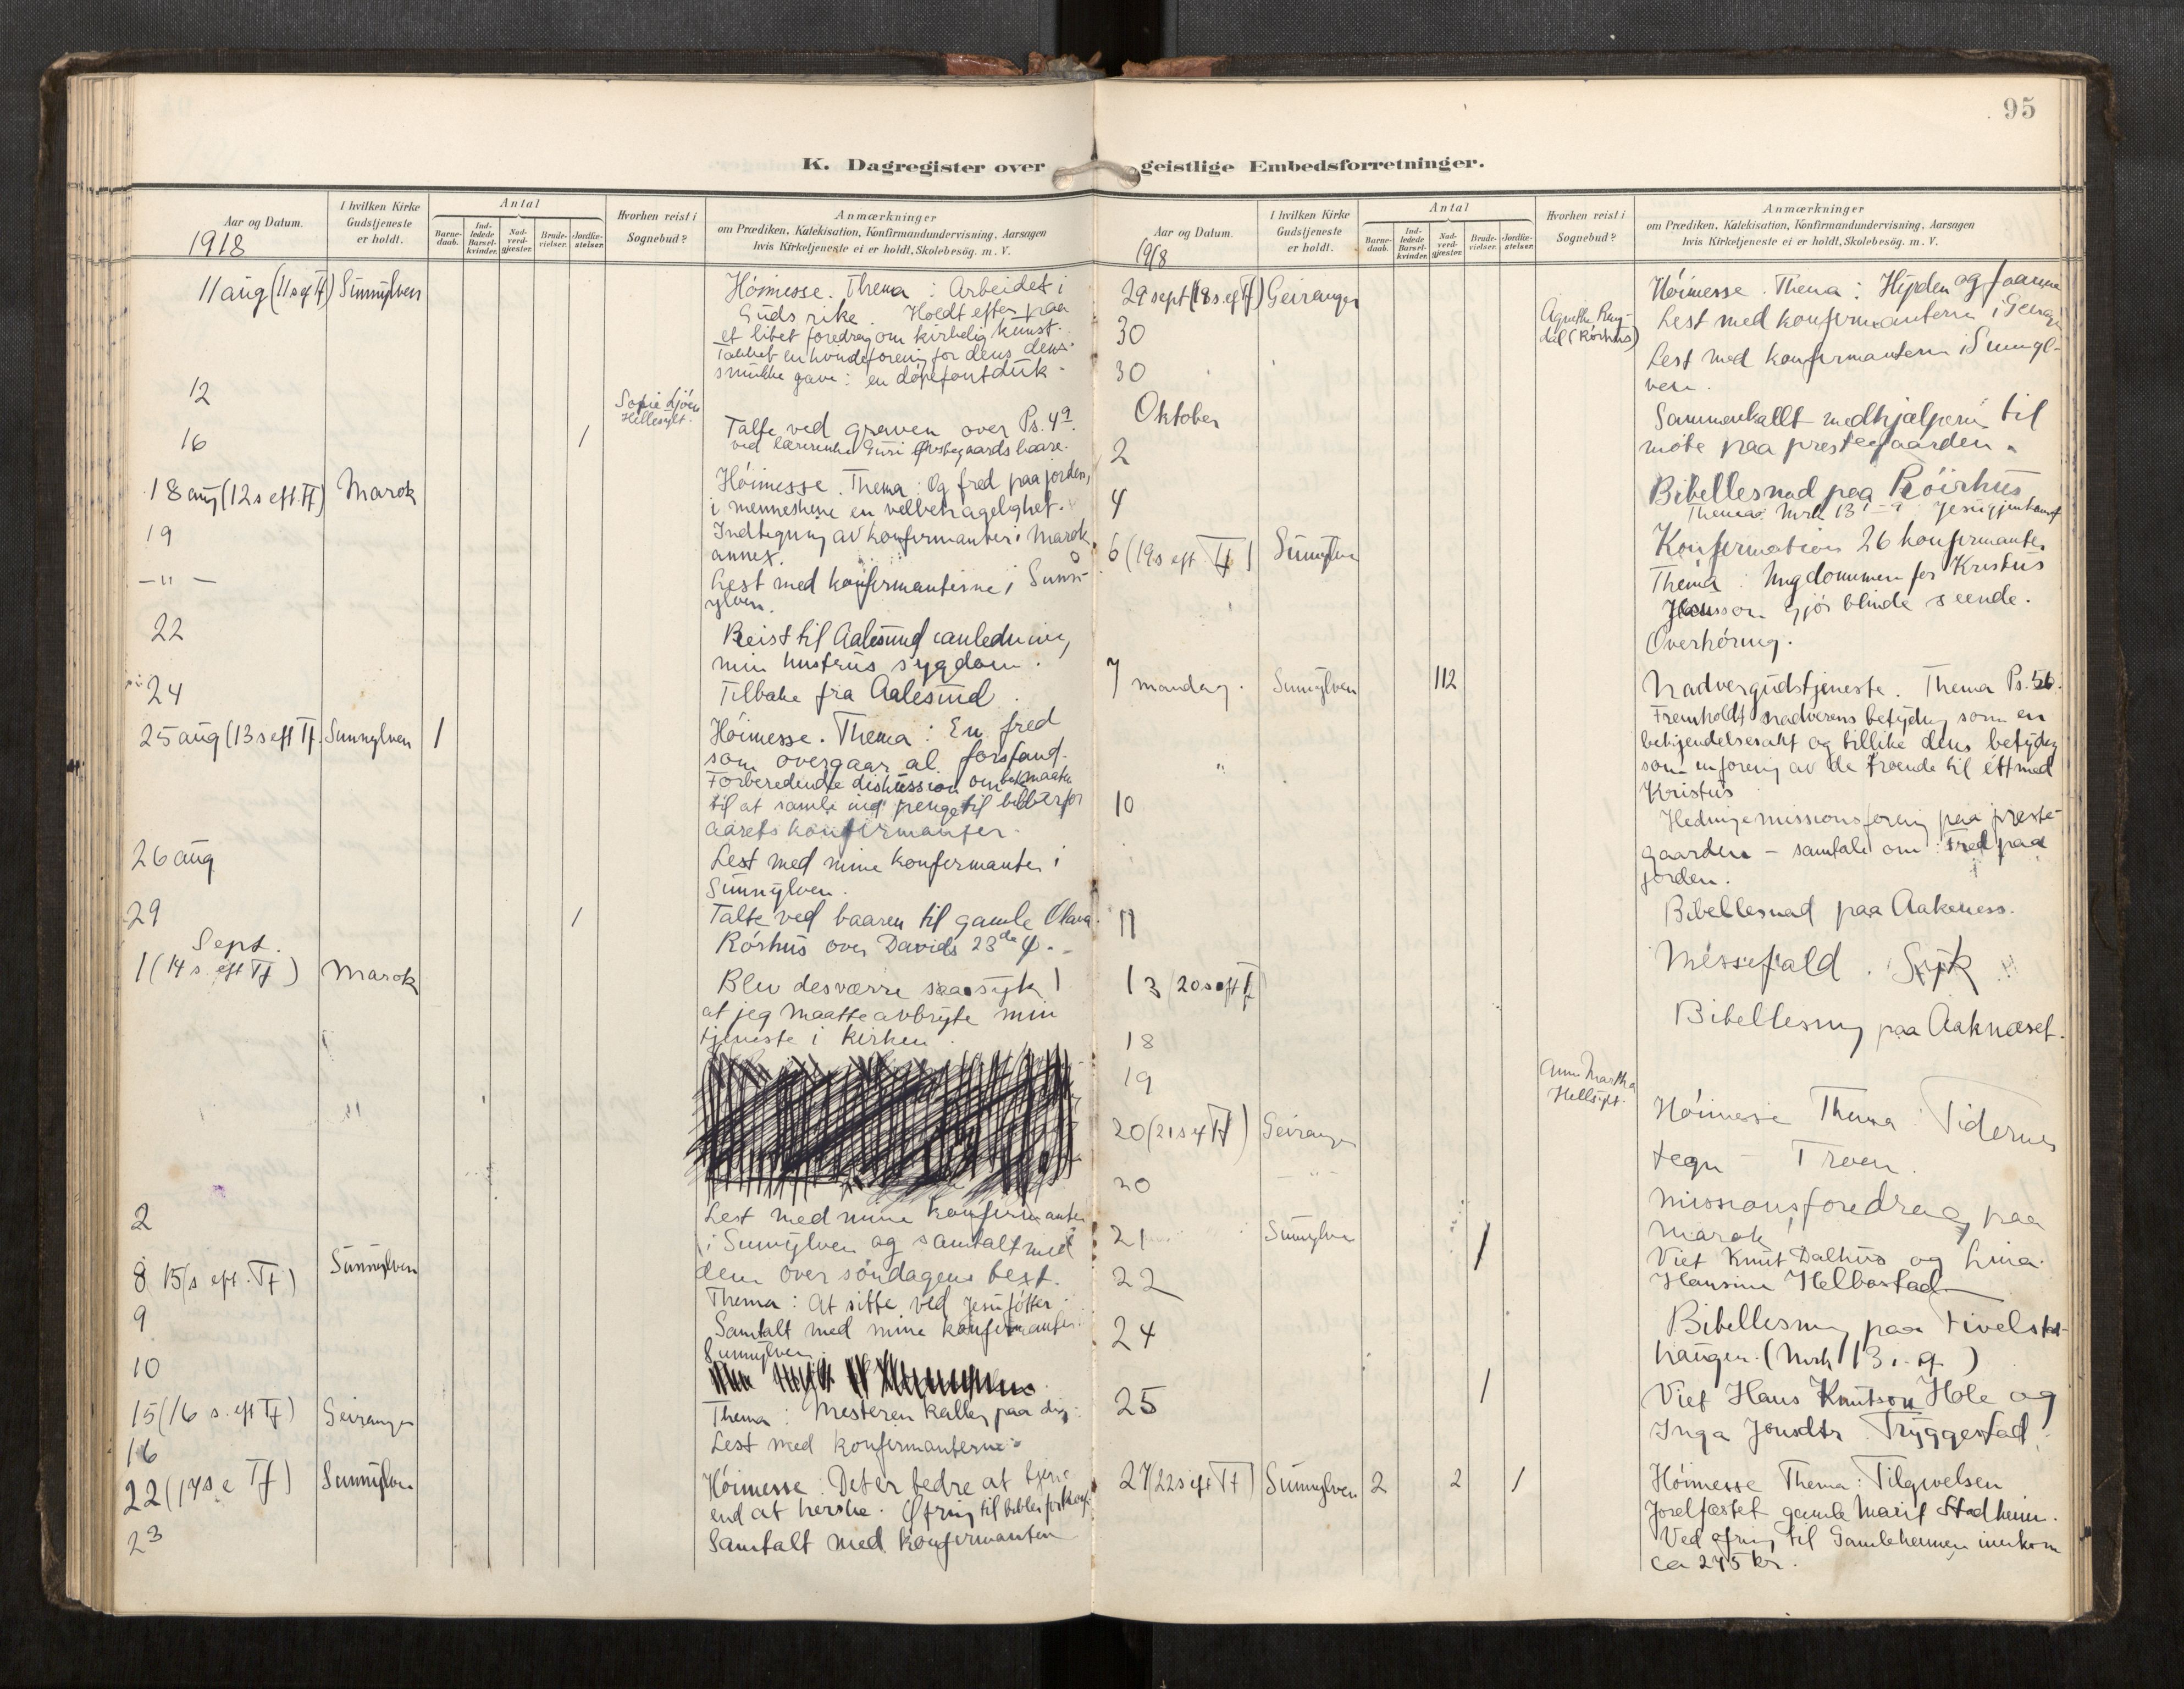 95
K. Dagregister over geistlige Embedsforretninger.
Aar og Datum.
1918
I hvilken Kirke Gudstjeneste er holdt.
Antal
Barne-daab.
Ind-ledede Barsel-kvinder.
Nad-verd-gjæster.
Brude-vielser.
Jordfæ-stelser.
Hvorhen reist i Sognebud?
Anmærkninger
om Prædiken, Katekisation, Konfirmandundervisning, Aarsagen
hvis Kirketjeneste ei er holdt, Skolebesøg. m. V.
11 aug (11 s ef Tf) Sunnylven
Høimesse. Thema: Arbeidet i
Guds rike. Holdt efter paa
et litet foredrag om kirkelig kunst.
Takket en kvindeforening for dens
smukke gave: en døpefontduk
12
Hellesylt.
16
1
Talte ved graven over Ps. 4 9.
ved lærerinde Guri baare.
18 aug (12 s eft. Tf) Marok
Høimesse. Thema: Og fred paa jorden,
i menneskene en velbehagelighet.
19
Indtegning av konfirmanter i Marok
annex.
— " —
Lest med konfirmanterne i Sunn-
ylven.
22
Reist til Aalesund i anledning
min hustrus sygdom.
24
Tilbake fra Aalesund.
25 aug (13 s eft Tf. Sunnylven 1
Høimesse. Thema: En fred
som overgaar al forstand.
Forberedende diskussion om
til at samle ind penge til bibler for
aarets konfirmanter.
26 aug
Lest med mine konfirmanter i
Sunnylven.
29
1
Talte ved baaren til gamle Olava
Rørhus over Davids 23de ψ.
Sept.
1 (14 s. eft Tf) Marok
Blev desværre saa syk
at jeg maatte avbryte min
tjeneste i kirken.
2
Lest med mine konfirmanter
i Sunnylven og samtalt med
dem over søndagens text.
8 15(s eft. Tf) Sunnylven
Thema: At sitte ved Jesu føtter.
9
Samtalt med mine konfirmanter
Sunnylven.
10
15 (16 s. eft Tf) Geiranger
Thema: Mesteren kaller paa dig.
16
Lest med konfirmanterne
22 (17 s e Tf) Sunnylven
Høimesse: Det er bedre at tjene
end at herske. Ofring til bibler for konf.
23
Samtalt med konfirmanten
Aar og Datum.
1918
I hvilken Kirke Gudstjeneste er holdt.
Antal
Barne-daab.
Ind-ledede Barsel-kvinder.
Nad-verd-gjæster.
Brude-vielser.
Jordfæ-stelser.
Hvorhen reist i Sognebud?
Anmærkninger
om Prædiken, Katekisation, Konfirmandundervisning, Aarsagen
hvis Kirketjeneste ei er holdt, Skolebesøg. m. V.
29 sept (18 s. ef Tf) Geiranger
Høimesse. Thema: Hyrden og faarene
30
(Rørhus)
Lest med konfirmanterne i Geiranger
30
Lest med konfirmanterne i Sunnyl-
ven.
Oktober
2
Sammenkallt medhjælperne til
møte paa prestegaarden.
4
Bibellesnad paa Röirhus
Thema: Mrk 13
6 (19 s eft. Tf) Sunnylven
Konfirmation 26 konfirmanter
Thema: Ungdommen for Kristus
gjør blinde seende.
Overhøring.
7 mandag. Sunnylven 112
Nadvergudstjeneste. Thema Ps. 56.
Fremholdt nadverens betydning som en
bekjendelsesakt og tillike dens betydning
som en forening av de troende til ett med
Kristus
10
Hedningemissionsforening paa preste-
gaarden - samtale om: Fred paa
jorden.
11
Bibellesnad paa Aakeness.
13 (20 s eft Tf
Messefald. Syk
18
Bibellesning paa Aaknæset.
19
Anne Martha
Hellsylt.
20 (21 s ef Tf) Geiranger
Høimesse Thema: Tidernes
tegn - Troen.
20 — " —
Missionsforedrag paa
Marok
21 Sunnylven 1
Viet Knut Dalhus og Lina
Hansine Helbostad
22
24
Bibellesning paa Tivelstad-
haugen. (Mrk 13 1-9)
25
1
Viet Hans Knutson Hole og
Inga Jonsdtr Tryggestad.
27 (22 s eft Tf) Sunnylven 2 2 1
Høimesse Thema: Tilgivelsen
Jordfæstet gamle Marit Stadheim.
Ved ofring til Gamleheimen innkom
ca 245 kr.